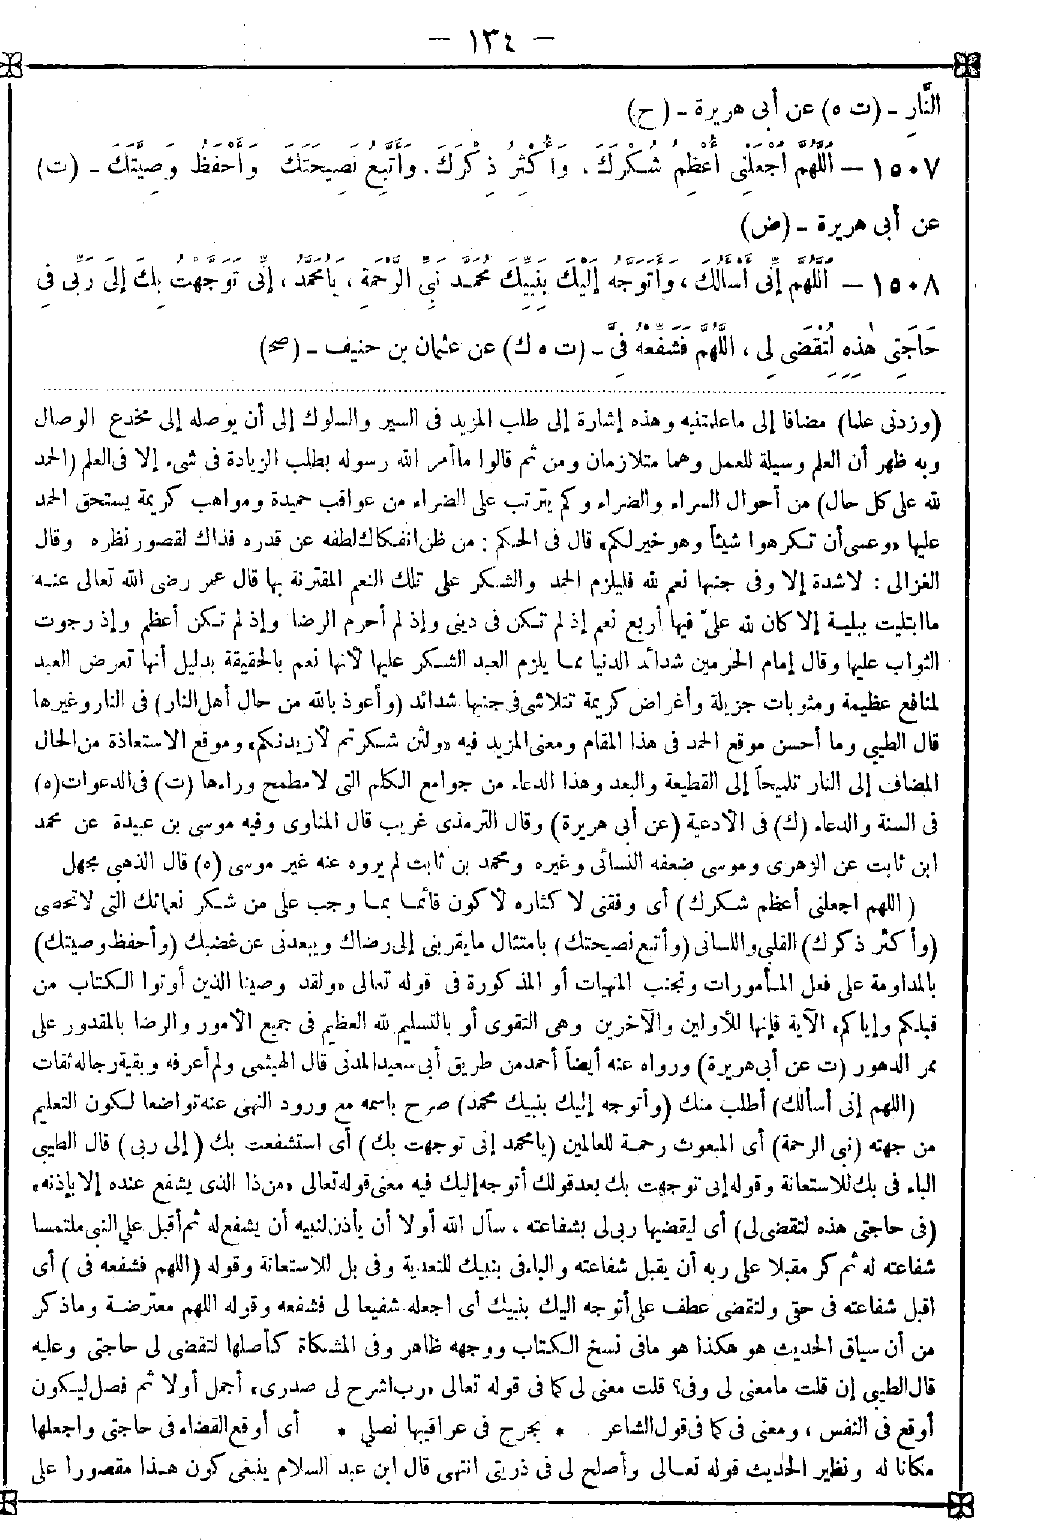 — ١٣٤ —
النَّارِ - (ت ه) عن أبى هريرة - (ح)
١٥٠٧ — اَللَّهُمَّ اجْعَلْنِى أُعْظِمُ شُكْرَكَ، وَأُكْثِرُ ذِكْرَكَ، وَأَتَّبِعُ نَصِيحَتَكَ وَأَحْفَظُ وَصِيَّتَكَ - (ت)
عن أبى هريرة - (ض)
١٥٠٨ — اَللَّهُمَّ إِنِّى أَسْأَلُكَ، وَأَتَوَجَّهُ إِلَيْكَ بِنَبِيِّكَ مُحَمَّدٍ نَبِىِّ الرَّحْمَةِ، يَامُحَمَّدُ، إِنِّى تَوَجَّهْتُ بِكَ إِلَى رَبِّى فِى
حَاجَتِى هٰذِهِ لِتُقْضَى لِى، اللَّهُمَّ فَشَفِّعْهُ فِىَّ - (ت ه ك) عن عثمان بن حنيف - (صح)
(وزدنى علما) مضافا إلى ماعلمتنيه وهذه إشارة إلى طلب المزيد فى السير والسلوك إلى أن يوصله إلى مخدع الوصال
وبه ظهر أن العلم وسيلة للعمل وهما متلازمان ومن ثم قالوا ماأمر الله رسوله بطلب الزيادة فى شىء إلا فى العلم (الحمد
لله على كل حال) من أحوال السراء والضراء وكم يترتب على الضراء من عواقب حميدة ومواهب كريمة يستحق الحمد
عليها «وعسى أن تكرهوا شيئاً وهو خير لكم» قال فى الحكم: من ظن انفكاك لطفه عن قدره فذاك لقصور نظره وقال
الغزالى: لا شدة إلا وفى جنبها نعم لله فليلزم الحمد والشكر على تلك النعم المقترنة بها قال عمر رضى الله تعالى عنه
ماابتليت ببلية إلا كان لله علىّ فيها أربع نعم إذ لم تكن فى دينى وإذ لم أحرم الرضا وإذ لم تكن أعظم وإذ رجوت
الثواب عليها وقال إمام الحرمين شدائد الدنيا مما يلزم العبد الشكر عليها لأنها نعم بالحقيقة بدليل أنها تعرض العبد
لمنافع عظيمة ومثوبات جزيلة وأغراض كريمة تتلاشى فى جنبها شدائد (وأعوذ بالله من حال أهل النار) فى النار وغيرها
قال الطيبى وما أحسن موقع الحمد فى هذا المقام ومعنى المزيد فيه «ولئن شكرتم لأزيدنكم» وموقع الاستعاذة من الحال
المضاف إلى النار تلميحاً إلى القطيعة والبعد وهذا الدعاء من جوامع الكلم التى لا مطمح وراءها (ت) فى الدعوات (ه)
فى السنة والدعاء (ك) فى الأدعية (عن أبى هريرة) وقال الترمذى غريب قال المناوى وفيه موسى بن عبيدة عن محمد
ابن ثابت عن الزهرى وموسى ضعفه النسائى وغيره ومحمد بن ثابت لم يروه عنه غير موسى (ه) قال الذهبى مجهل
(اللهم اجعلنى أعظم شكرك) أى وفقنى لا كثاره لأكون قائما بما وجب على من شكر نعمائك التى لاتحصى
(وأكثر ذكرك) القلبى واللسانى (وأتبع نصيحتك) بامتثال مايقربنى إلى رضاك ويبعدنى عن غضبك (وأحفظ وصيتك)
بالمداومة على فعل المأمورات وتجنب المنهيات أو المذكورة فى قوله تعالى «ولقد وصينا الذين أوتوا الكتاب من
قبلكم وإياكم» الآية فإنها للأولين والآخرين وهى التقوى أو بالتسليم لله العظيم فى جميع الأمور والرضا بالمقدور على
ممر الدهور (ت عن أبى هريرة) ورواه عنه أيضاً أحمد من طريق أبى سعيد المدنى قال الهيثمى ولم أعرفه وبقية رجاله ثقات
(اللهم إنى أسألك) أطلب منك (وأتوجه إليك بنبيك محمد) صرح باسمه مع ورود النهى عنه تواضعا لكون التعليم
من جهته (نبى الرحمة) أى المبعوث رحمة للعالمين (يامحمد إنى توجهت بك) أى استشفعت بك (إلى ربى) قال الطيبى
الباء فى بك للاستعانة وقوله إنى توجهت بك بعد قولك أتوجه إليك فيه معنى قوله تعالى «من ذا الذى يشفع عنده إلا بإذنه»
(فى حاجتى هذه لتقضى لى) أى ليقضيها ربى لى بشفاعته، سأل الله أولا أن يأذن لنبيه أن يشفع له ثم أقبل على النبى ملتمسا
شفاعته له ثم كر مقبلا على ربه أن يقبل شفاعته والباء فى بنبيك للتعدية وفى بل للاستعانة وقوله (اللهم فشفعه فى) أى
اقبل شفاعته فى حقى ولتقضى عطف على أتوجه اليك بنبيك أى اجعله شفيعا لى فشفعه وقوله اللهم معترضة وماذكر
من أن سياق الحديث هو هكذا هو مافى نسخ الكتاب ووجهه ظاهر وفى المشكاة كأصلها لتقضى لى حاجتى وعليه
قال الطيبى إن قلت مامعنى لى وفى؟ قلت معنى لى كما فى قوله تعالى «رب اشرح لى صدرى» أجمل أولا ثم فصل ليكون
أوقع فى النفس، ومعنى فى كما فى قول الشاعر * يجرح فى عراقيبها نصلي * أى أوقع القضاء فى حاجتى واجعلها
مكانا له ونظير الحديث قوله تعالى وأصلح لى فى ذريتى انتهى قال ابن عبد السلام ينبغى كون هذا مقصورا على